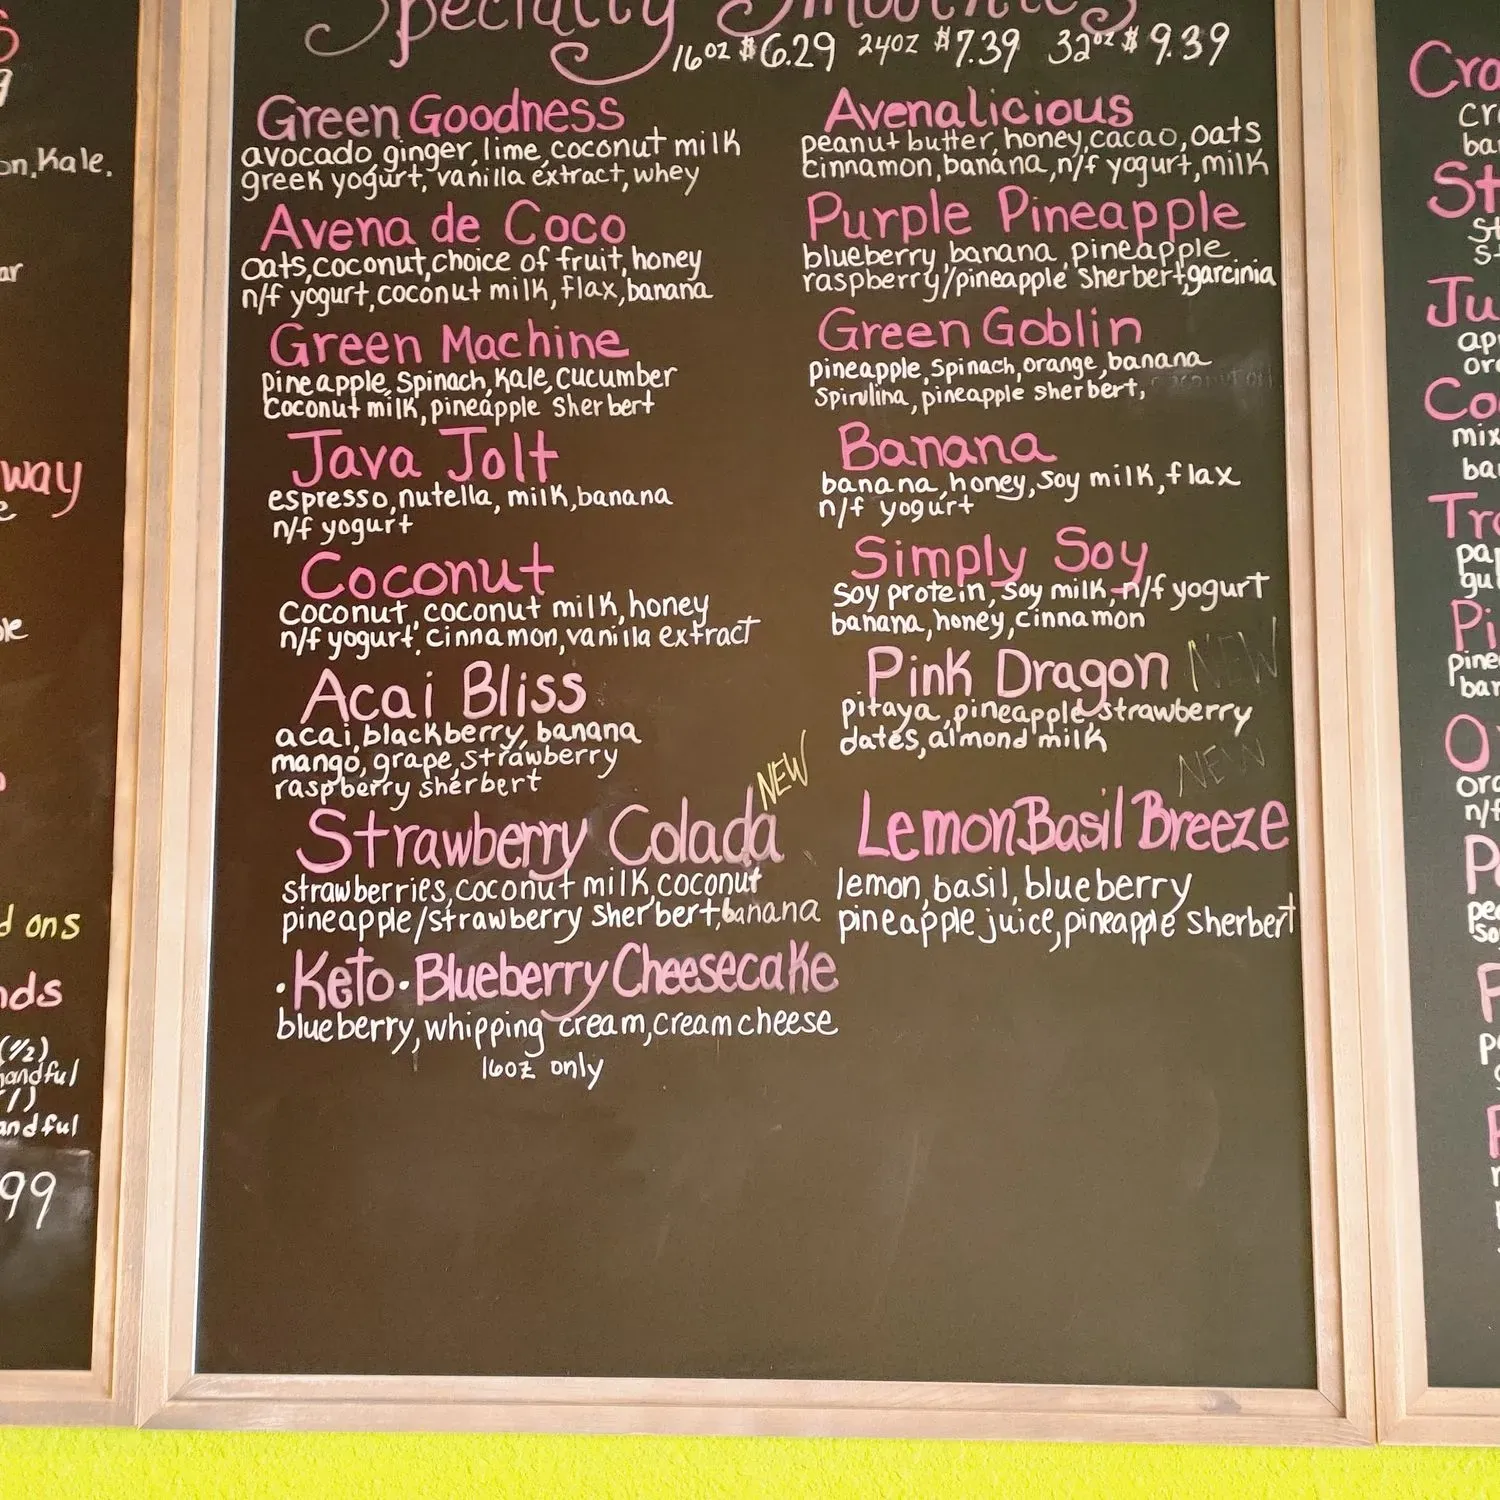 Specialty Smoothies
16oz $6.29 24oz $7.39 32oz $9.39
Green Goodness
avocado, ginger, lime, coconut milk
greek yogurt, vanilla extract, whey
Avena de Coco
oats, coconut, choice of fruit, honey
n/f yogurt, coconut milk, flax, banana
Green Machine
pineapple, spinach, kale, cucumber
coconut milk, pineapple sherbert
Java Jolt
espresso, nutella, milk, banana
n/f yogurt
Coconut
coconut, coconut milk, honey
n/f yogurt, cinnamon, vanilla extract
Acai Bliss
acai, blackberry, banana
mango, grape, strawberry
raspberry sherbert
NEW
Strawberry Colada
strawberries, coconut milk, coconut
pineapple/strawberry sherbert, banana
·Keto·Blueberry Cheesecake
blueberry, whipping cream, cream cheese
16oz only
Avenalicious
peanut butter, honey, cacao, oats
cinnamon, banana, n/f yogurt, milk
Purple Pineapple
blueberry, banana, pineapple
raspberry/pineapple sherbert, garcinia
Green Goblin
pineapple, spinach, orange, banana
spirulina, pineapple sherbert,
Banana
banana, honey, soy milk, flax
n/f yogurt
Simply Soy
soy protein, soy milk, n/f yogurt
banana, honey, cinnamon
Pink Dragon NEW
pitaya, pineapple, strawberry
dates, almond milk
NEW
Lemon Basil Breeze
lemon, basil, blueberry
pineapple juice, pineapple sherbert
Kale.
way
d ons
(1/2)
handful
99